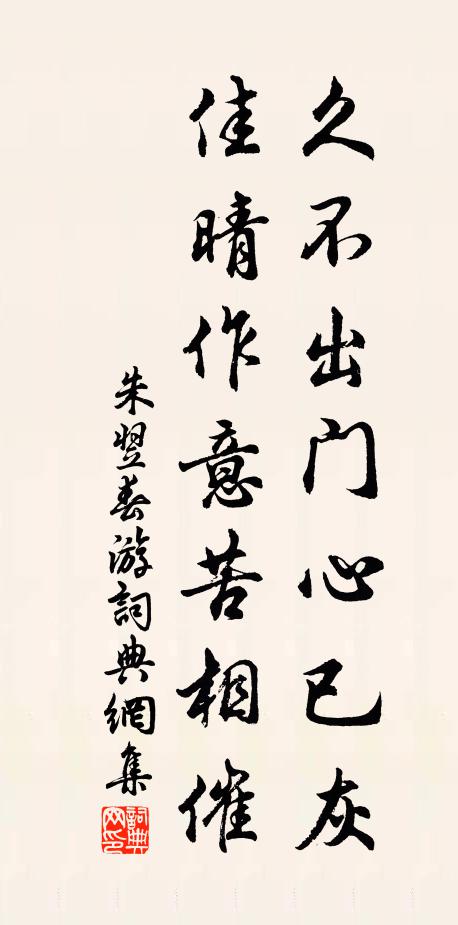 久不出門心已灰
佳晴作意苦相催
朱翌春游詞典網集
詞典網印